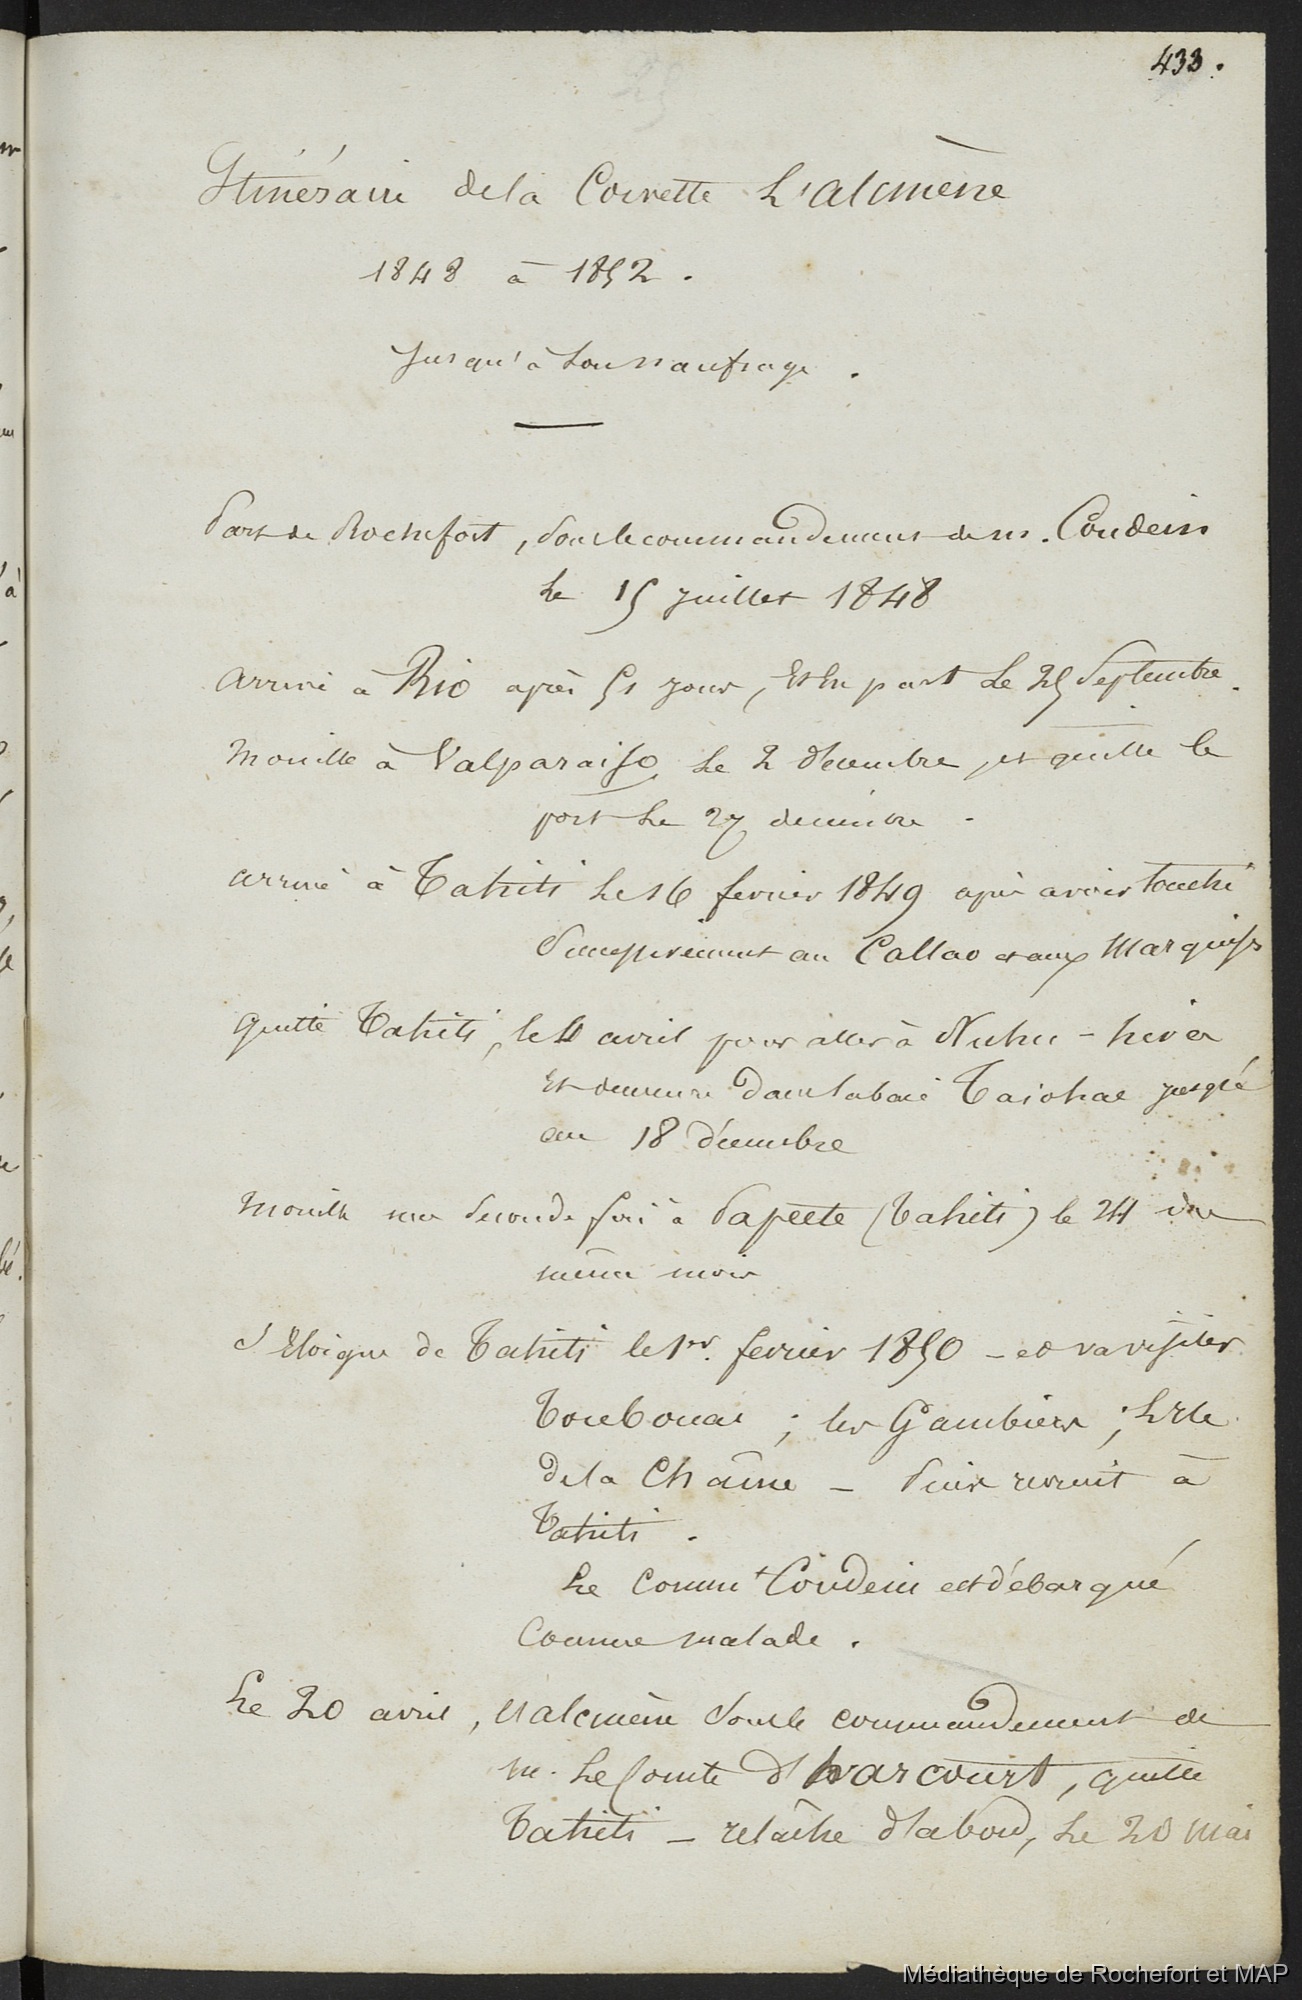 433.
Itinéraire de la Corvette L'alcmène
1848 à 1852.
Jusqu'à son naufrage.
Part de Rochefort, sous le commandement de m. Coudein
le 15 juillet 1848
arrive à Rio après 51 jours, et en part le 25 Septembre.
Mouille à Valparaiso le 2 décembre, et quitte le
port le 27 décembre.
arrive à Tahiti le 16 fevrier 1849 après avoir touché
Successivement au Callao et aux Marquises
quitte Tahiti, le 4 avril pour aller à Nuhu-hiva
et demeure dans la baie Taiohae jusqu'
au 18 décembre
Mouille une seconde fois à Papeete (Tahiti) le 24 du
même mois
S'éloigne de Tahiti le 1er. fevrier 1850 - et va visiter
Toubouai ; les Gambiers ; L'île
de la Chaîne - Puis revient à
Tahiti.
Le Commt Coudein est débarqué
Comme malade.
Le 20 avril, l'alcmène sous le commandement de
m. Le Comte d'harcourt, quitte
Tahiti - relâche d'abord, le 28 mai
Médiathèque de Rochefort et MAP